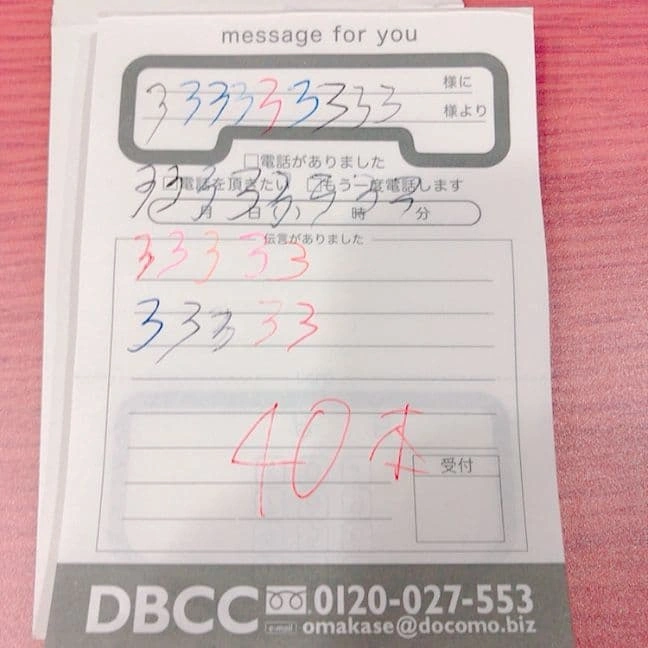 message for you
様に
3 3 3 3 3 3 3 3 3
様より
□電話がありました
3 3 3 3 3 3 3 3
□電話を頂きたい □もう一度電話します
月 日 ( ) 時 分
伝言がありました
3 3 3 3 3
3 3 3 3 3
40本
受付
DBCC 0120-027-553
e-mail omakase@docomo.biz